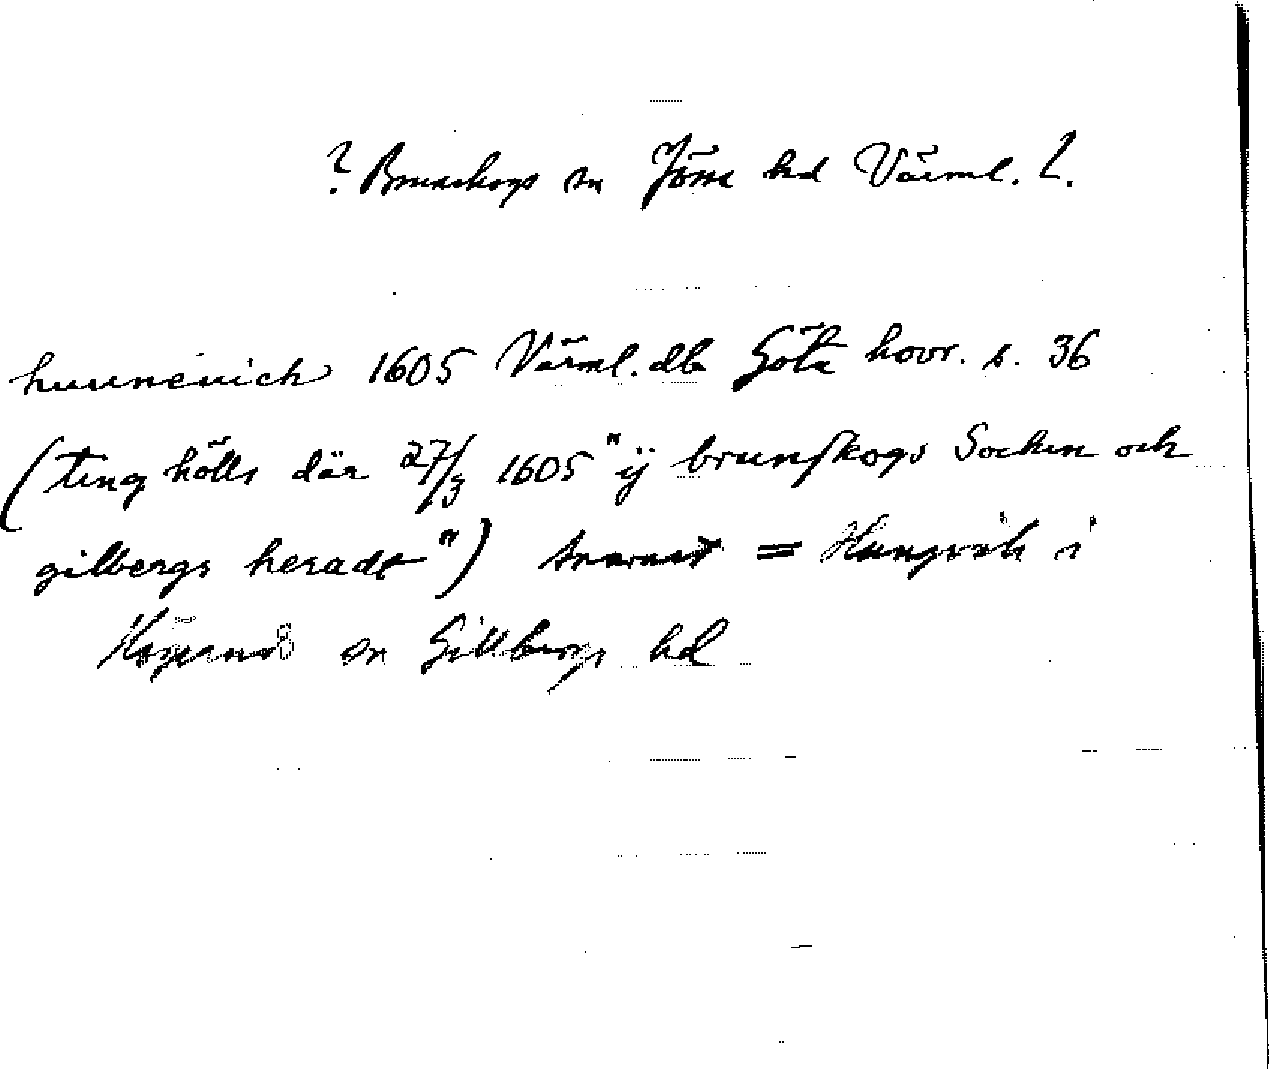 ? Brunskogs sn Jösse hd Värml. L.
hunneuich 1605 Värml. db Göta hovr. s. 36
(ting hölls där 27/3 1605 "ij brunskogs Sochen och
gilbergs heradt") snarast = Hungvik i
Högerud sn Gillbergs hd